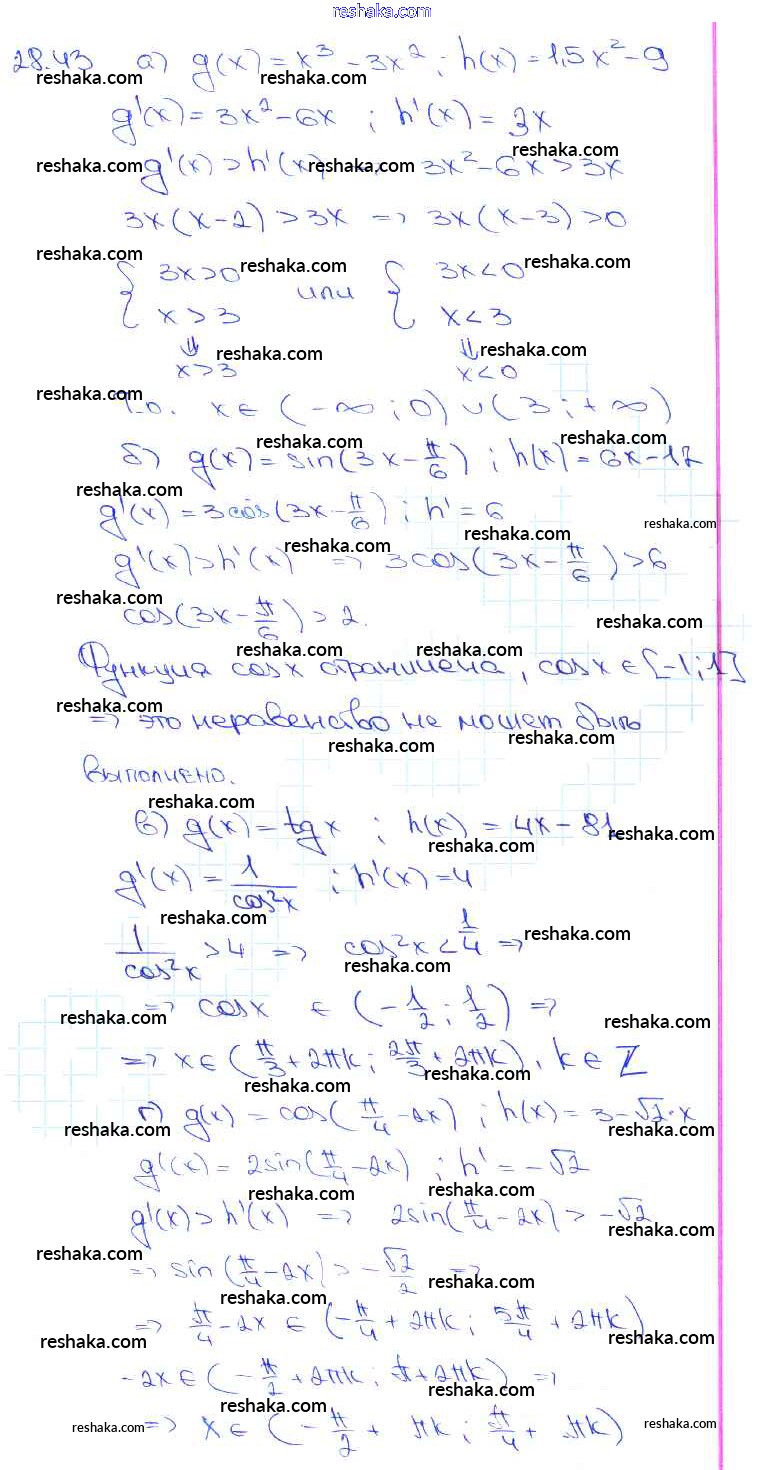 reshaka.com
28.43 а) g(x) = x³ - 3x² ; h(x) = 1,5x² - 9
reshaka.com reshaka.com reshaka.com
g'(x) = 3x² - 6x ; h'(x) = 3x
reshaka.com
reshaka.com g'(x) > h'(x) reshaka.com 3x² - 6x > 3x
3x(x-2) > 3x => 3x(x-3) > 0
reshaka.com reshaka.com reshaka.com
{ 3x > 0 или { 3x < 0
x > 3 x < 3
⇓ reshaka.com ⇓ reshaka.com
x > 3 x < 0
reshaka.com
Т.о. x ∈ (-∞ ; 0) ∪ (3 ; +∞)
reshaka.com reshaka.com
б) g(x) = sin(3x - π/6) ; h(x) = 6x - 12
reshaka.com
g'(x) = 3cos(3x - π/6) ; h' = 6
reshaka.com reshaka.com reshaka.com
g'(x) > h'(x) => 3cos(3x - π/6) > 6
reshaka.com
cos(3x - π/6) > 2.
reshaka.com
reshaka.com reshaka.com
Функция cosx ограничена, cosx ∈ [-1;1]
reshaka.com
=> это неравенство не может быть
reshaka.com reshaka.com
выполнено.
reshaka.com
в) g(x) = tgx ; h(x) = 4x - 81
reshaka.com reshaka.com
g'(x) = 1/cos²x ; h'(x) = 4
reshaka.com reshaka.com
1/cos²x > 4 => cos²x < 1/4 =>
reshaka.com
=> cosx ∈ (-1/2 ; 1/2) =>
reshaka.com reshaka.com
=> x ∈ (π/3 + 2πk ; 2π/3 + 2πk), k ∈ Z
reshaka.com
г) g(x) = cos(π/4 - 2x) ; h(x) = 3 - √2·x
reshaka.com reshaka.com reshaka.com
g'(x) = 2sin(π/4 - 2x) ; h' = -√2
reshaka.com reshaka.com
g'(x) > h'(x) => 2sin(π/4 - 2x) > -√2
reshaka.com
reshaka.com
=> sin(π/4 - 2x) > -√2/2 =>
reshaka.com reshaka.com
=> π/4 - 2x ∈ (-π/4 + 2πk ; 5π/4 + 2πk)
reshaka.com reshaka.com reshaka.com
-2x ∈ (-π/2 + 2πk ; π + 2πk) =>
reshaka.com reshaka.com
reshaka.com => x ∈ (-π/2 + πk ; π/4 + πk) reshaka.com